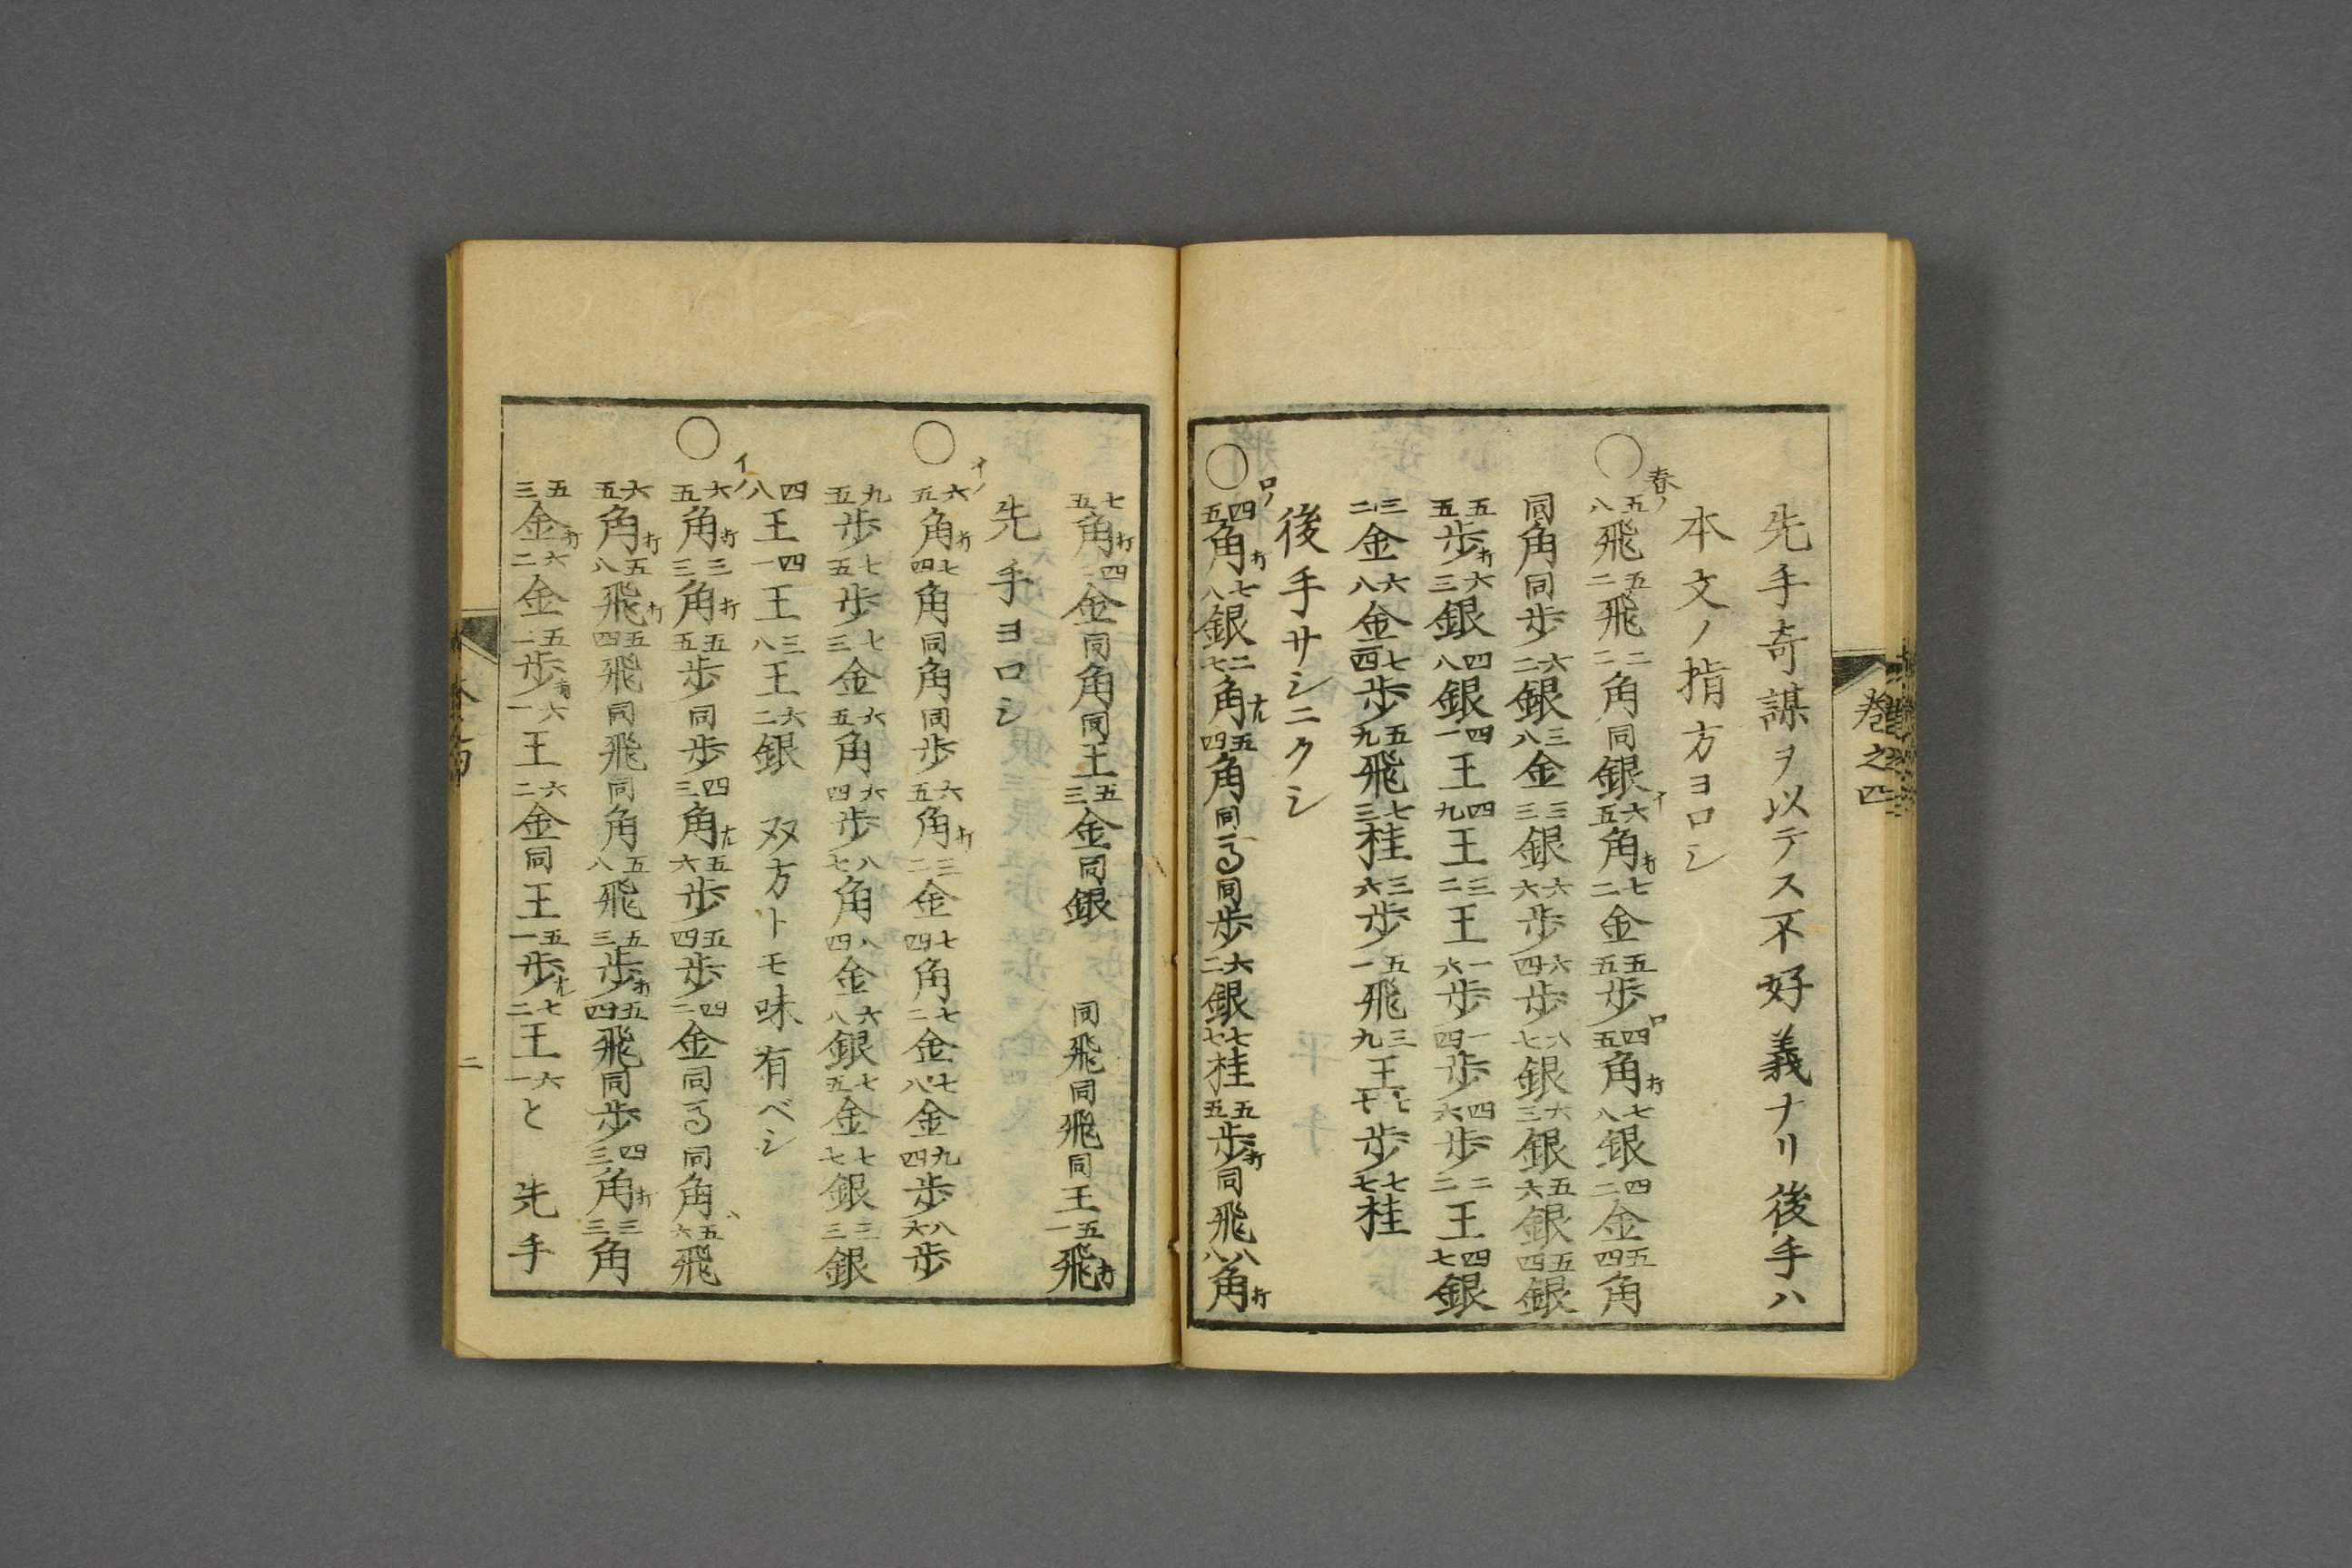 巻之四
先手奇謀ヲ以テス不好義ナリ後手ハ
本文ノ指方ヨロシ
春ノ
○五八飛五二飛二二角同銀イ六五角打七二金五五歩ロ四五角打七八銀四二金五四角
同角同歩六二銀三八金三三銀六六歩六四歩八七銀六三銀五六銀五四銀
五五歩打六三銀四八銀四一王四九王三二王一六歩一四歩四六歩二二王四七銀
三二金六八金七四歩五九飛七三桂三六歩五一飛三九王七五歩七七桂
後手サシニクシ
ロノ
○四五角打七八銀二七角ナル五四角同馬同歩六二銀七七桂五五歩打同飛八八角打
七五角打四二金同角同王五三金同銀 同飛同飛同王五一飛打
先手ヨロシ
イノ
○六五角打七四角同角同歩六五角打三二金七四角七二金七八金九四歩八六歩
九五歩七五歩七三金六五角六四歩八七角八四金六八銀七五金七七銀三三銀
四八王四一王三八王六二銀 双方トモ味有ベシ
イノ
○六五角打三三角打五五歩同歩四三角ナル五六歩五四歩四二金同馬同角ハ五六飛
六五角打五八飛打五四飛同飛同角五八飛五三歩打五四飛同歩四三角打三三角
五三金打六二金五二歩打六一王六二金同王五一歩ナル七二王六一と 先手
二